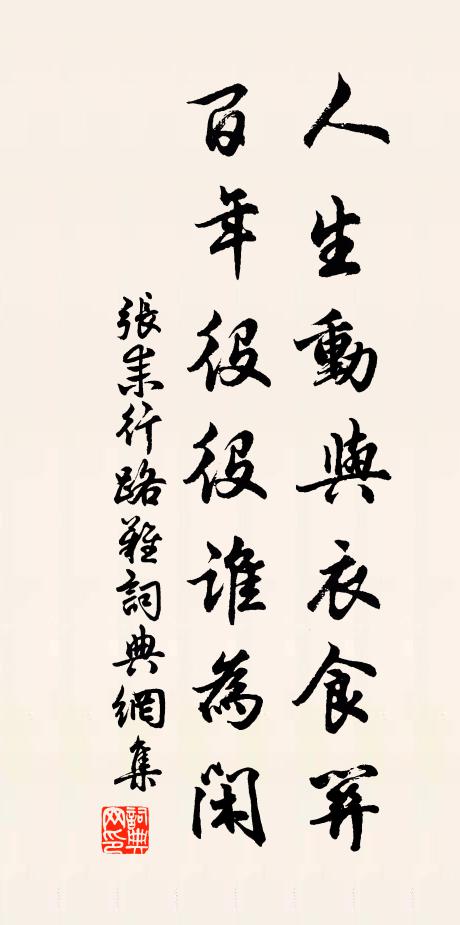 人生動與衣食關
百年役役誰為閑
張耒行路難詞典網集
詞典
网印